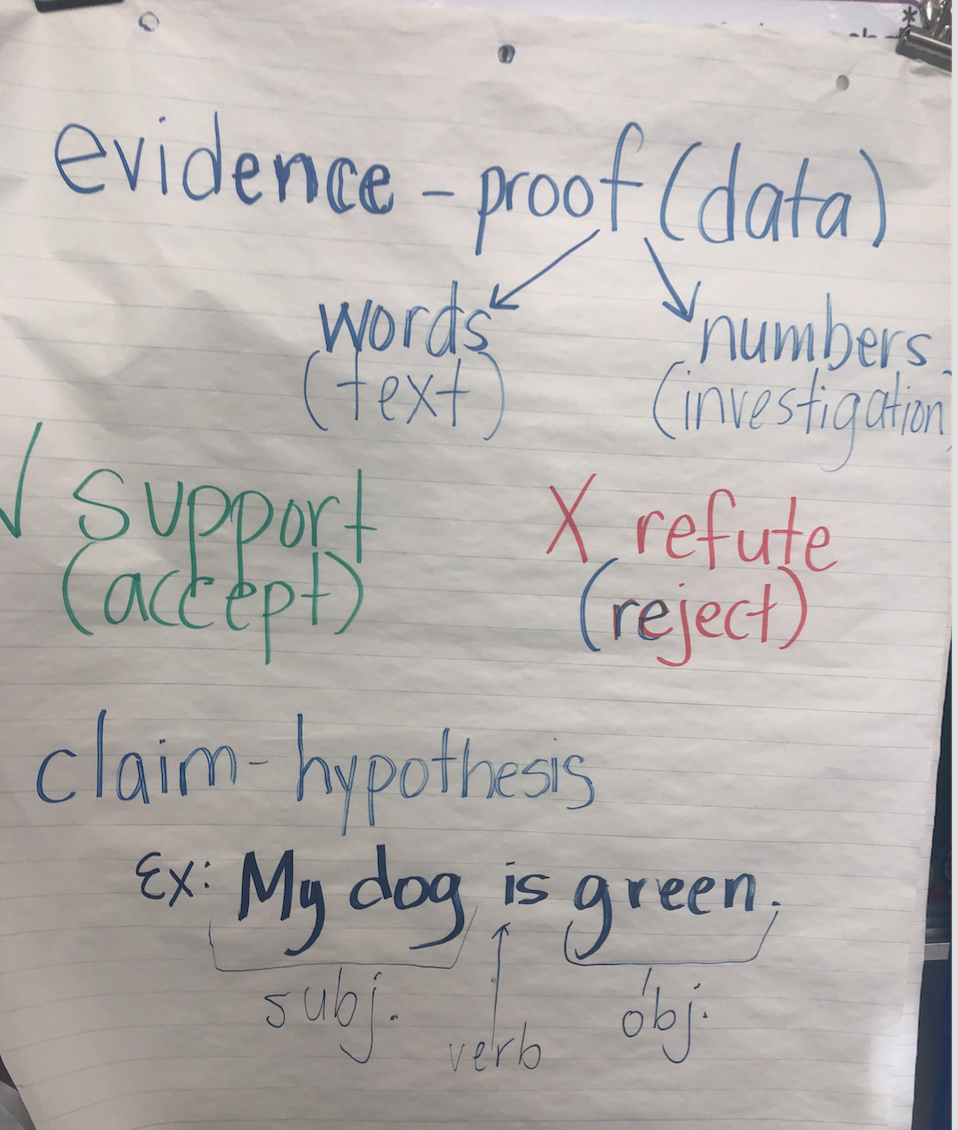 evidence - proof (data)
words numbers
(text) (investigation
✓ support X refute
(accept) (reject)
claim - hypothesis
Ex: My dog is green.
subj. verb obj.